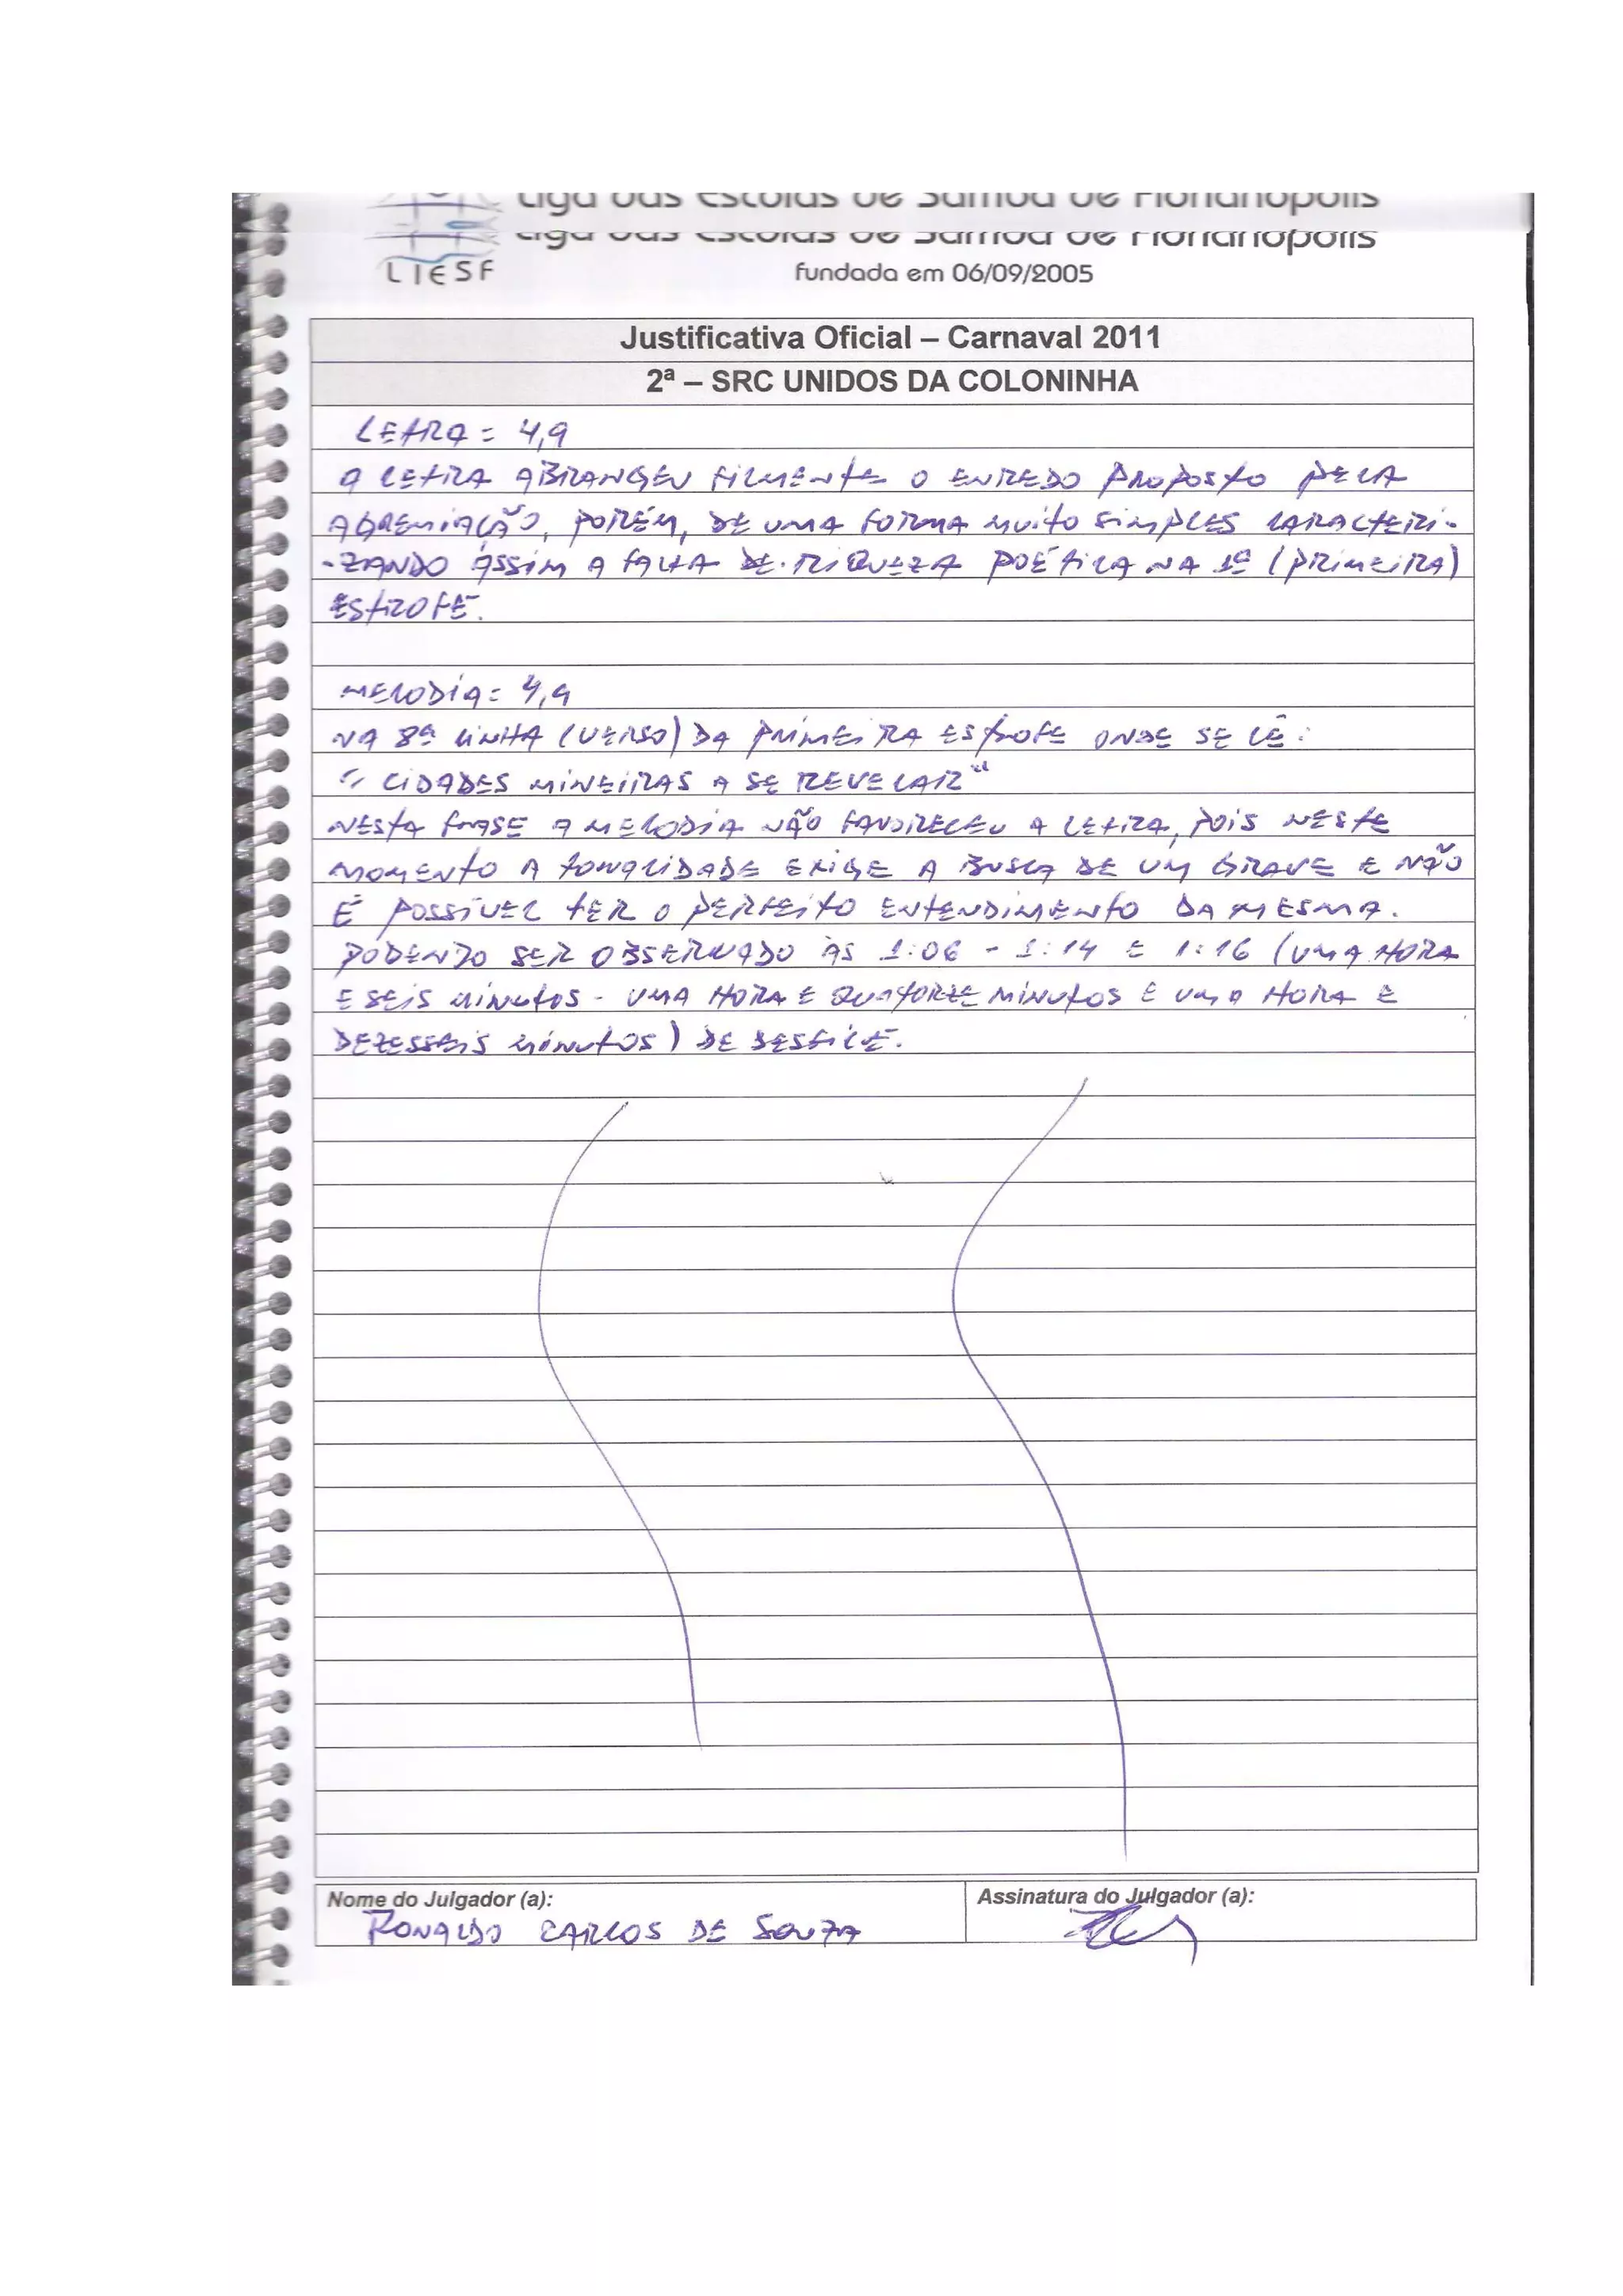 Liga das Escolas de Samba de Florianópolis
Liga das Escolas de Samba de Florianópolis
LIESF
fundada em 06/09/2005
Justificativa Oficial – Carnaval 2011
2ª – SRC UNIDOS DA COLONINHA
LETRA = 4,9
A LETRA ABRANGEU FILMENTE O ENREDO PROPOSTO PELA
AGREMIAÇÃO, PORÉM, DE UMA FORMA MUITO SIMPLES CARACTERI-
-ZANDO ASSIM A FALTA DE RIQUEZA POÉTICA NA 1ª (PRIMEIRA)
ESTROFE.
MELODIA = 4,9
NA 8ª LINHA (VERSO) DA PRIMEIRA ESTROFE ONDE SE LÊ:
"CIDADES MINEIRAS A SE REVELAR"
NESTA FRASE A MELODIA NÃO FAVORECEU A LETRA, POIS NESTE
MOMENTO A TONALIDADE EXIGE A BUSCA DE UM GRAVE E NÃO
É POSSÍVEL TER O PERFEITO ENTENDIMENTO DA MESMA.
PODENDO SER OBSERVADO ÀS 1:06 - 1:14 E 1:16 (UMA HORA
E SEIS MINUTOS - UMA HORA E QUATORZE MINUTOS E UMA HORA E
DEZESSEIS MINUTOS) DE DESFILE.
Nome do Julgador (a):
Assinatura do Julgador (a):
RONALDO CARLOS DE SOUZA